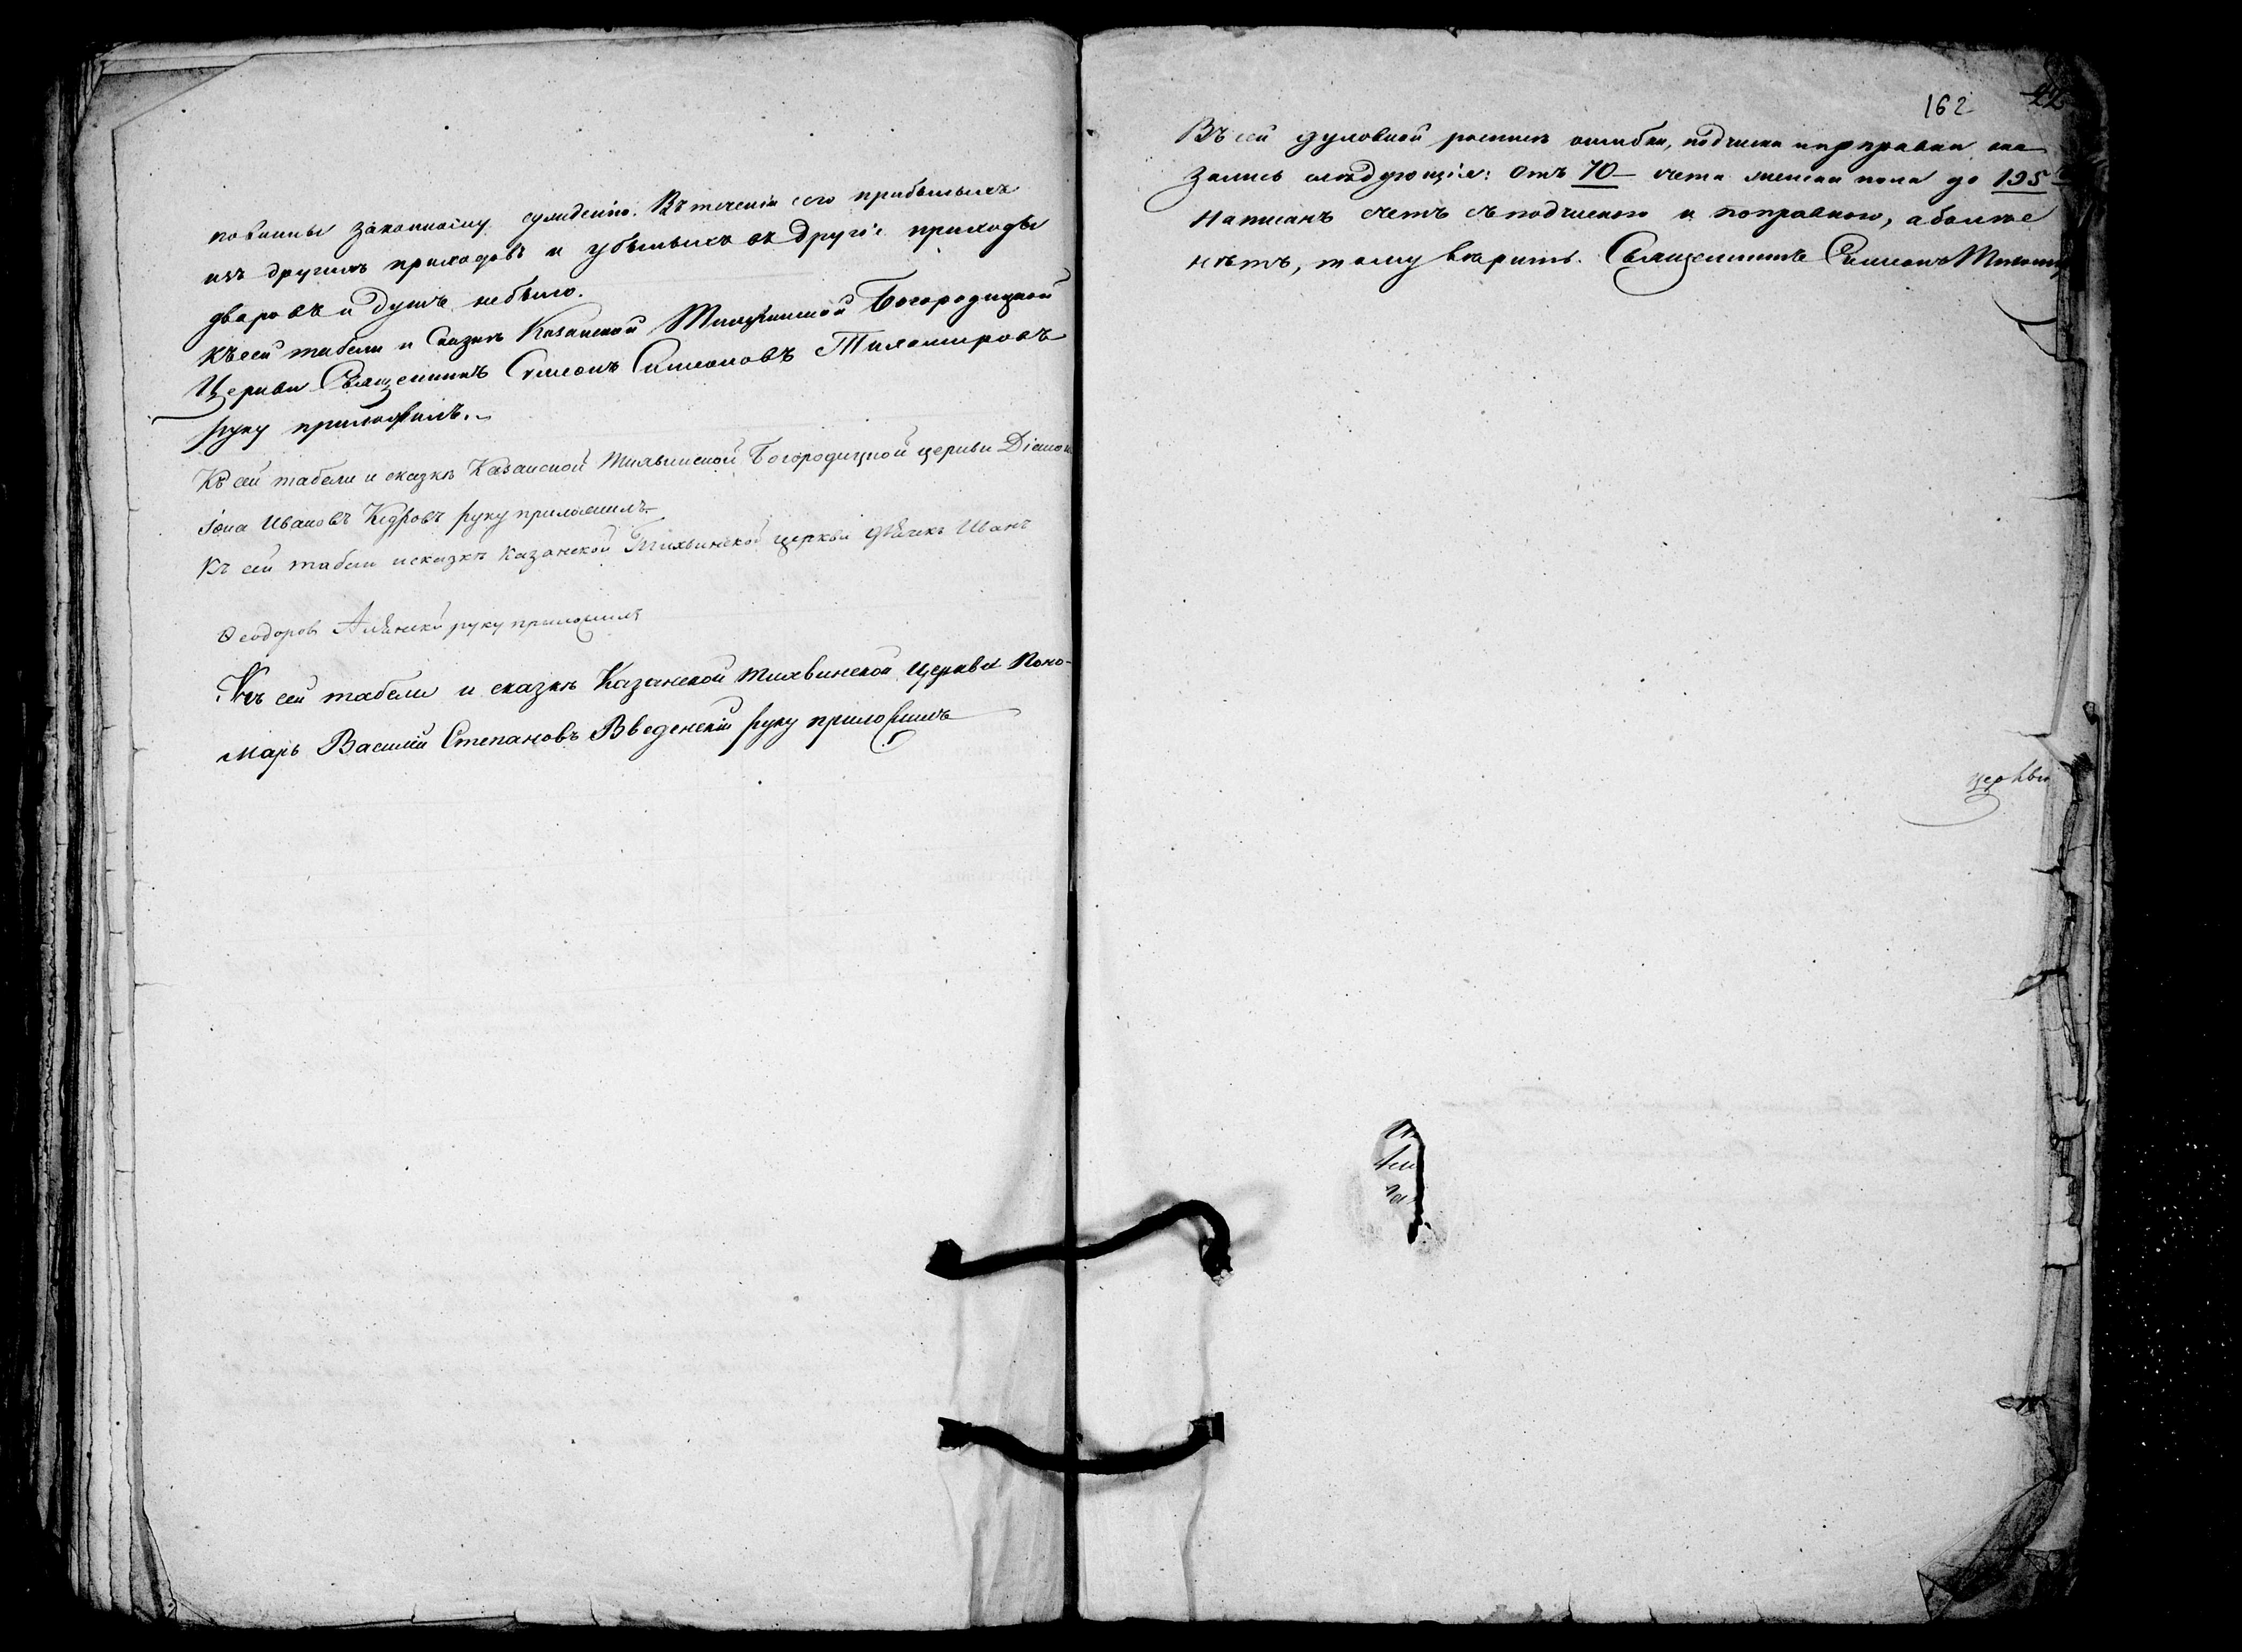 повинны законному сужденію. Въ теченіи сего прибылыхъ
изъ другихъ приходовъ и убылыхъ въ другіе приходы
дворовъ и душъ небыло.
Къ сей табели и сказкѣ Казанской Тихвинской Богородицкой
Церкви Священникъ Симеонъ Симеоновъ Тихомировъ
руку приложилъ.
Къ сей табели и сказкѣ Казанской Тихвинской Богородицкой церкви Діаконъ
Іона Ивановъ Кедровъ руку приложилъ
Къ сей табели и сказкѣ Казанской Тихвинской церкви дьячекъ Иванъ
Ѳеодоровъ руку приложилъ
Къ сей табели и сказкѣ Казанской Тихвинской церкви Поно-
марь Василій Степановъ Введенскій руку приложилъ
162
Въ сей духовной росписѣ ошибки, подчистки и поправки ока
зались слѣдующія: Отъ 70 счета женска пола до 195
написанъ счетъ съ подчисткою и поправкою, а более
нѣтъ, тому вѣрить. Священникъ Симеонъ Тихомир
церкви